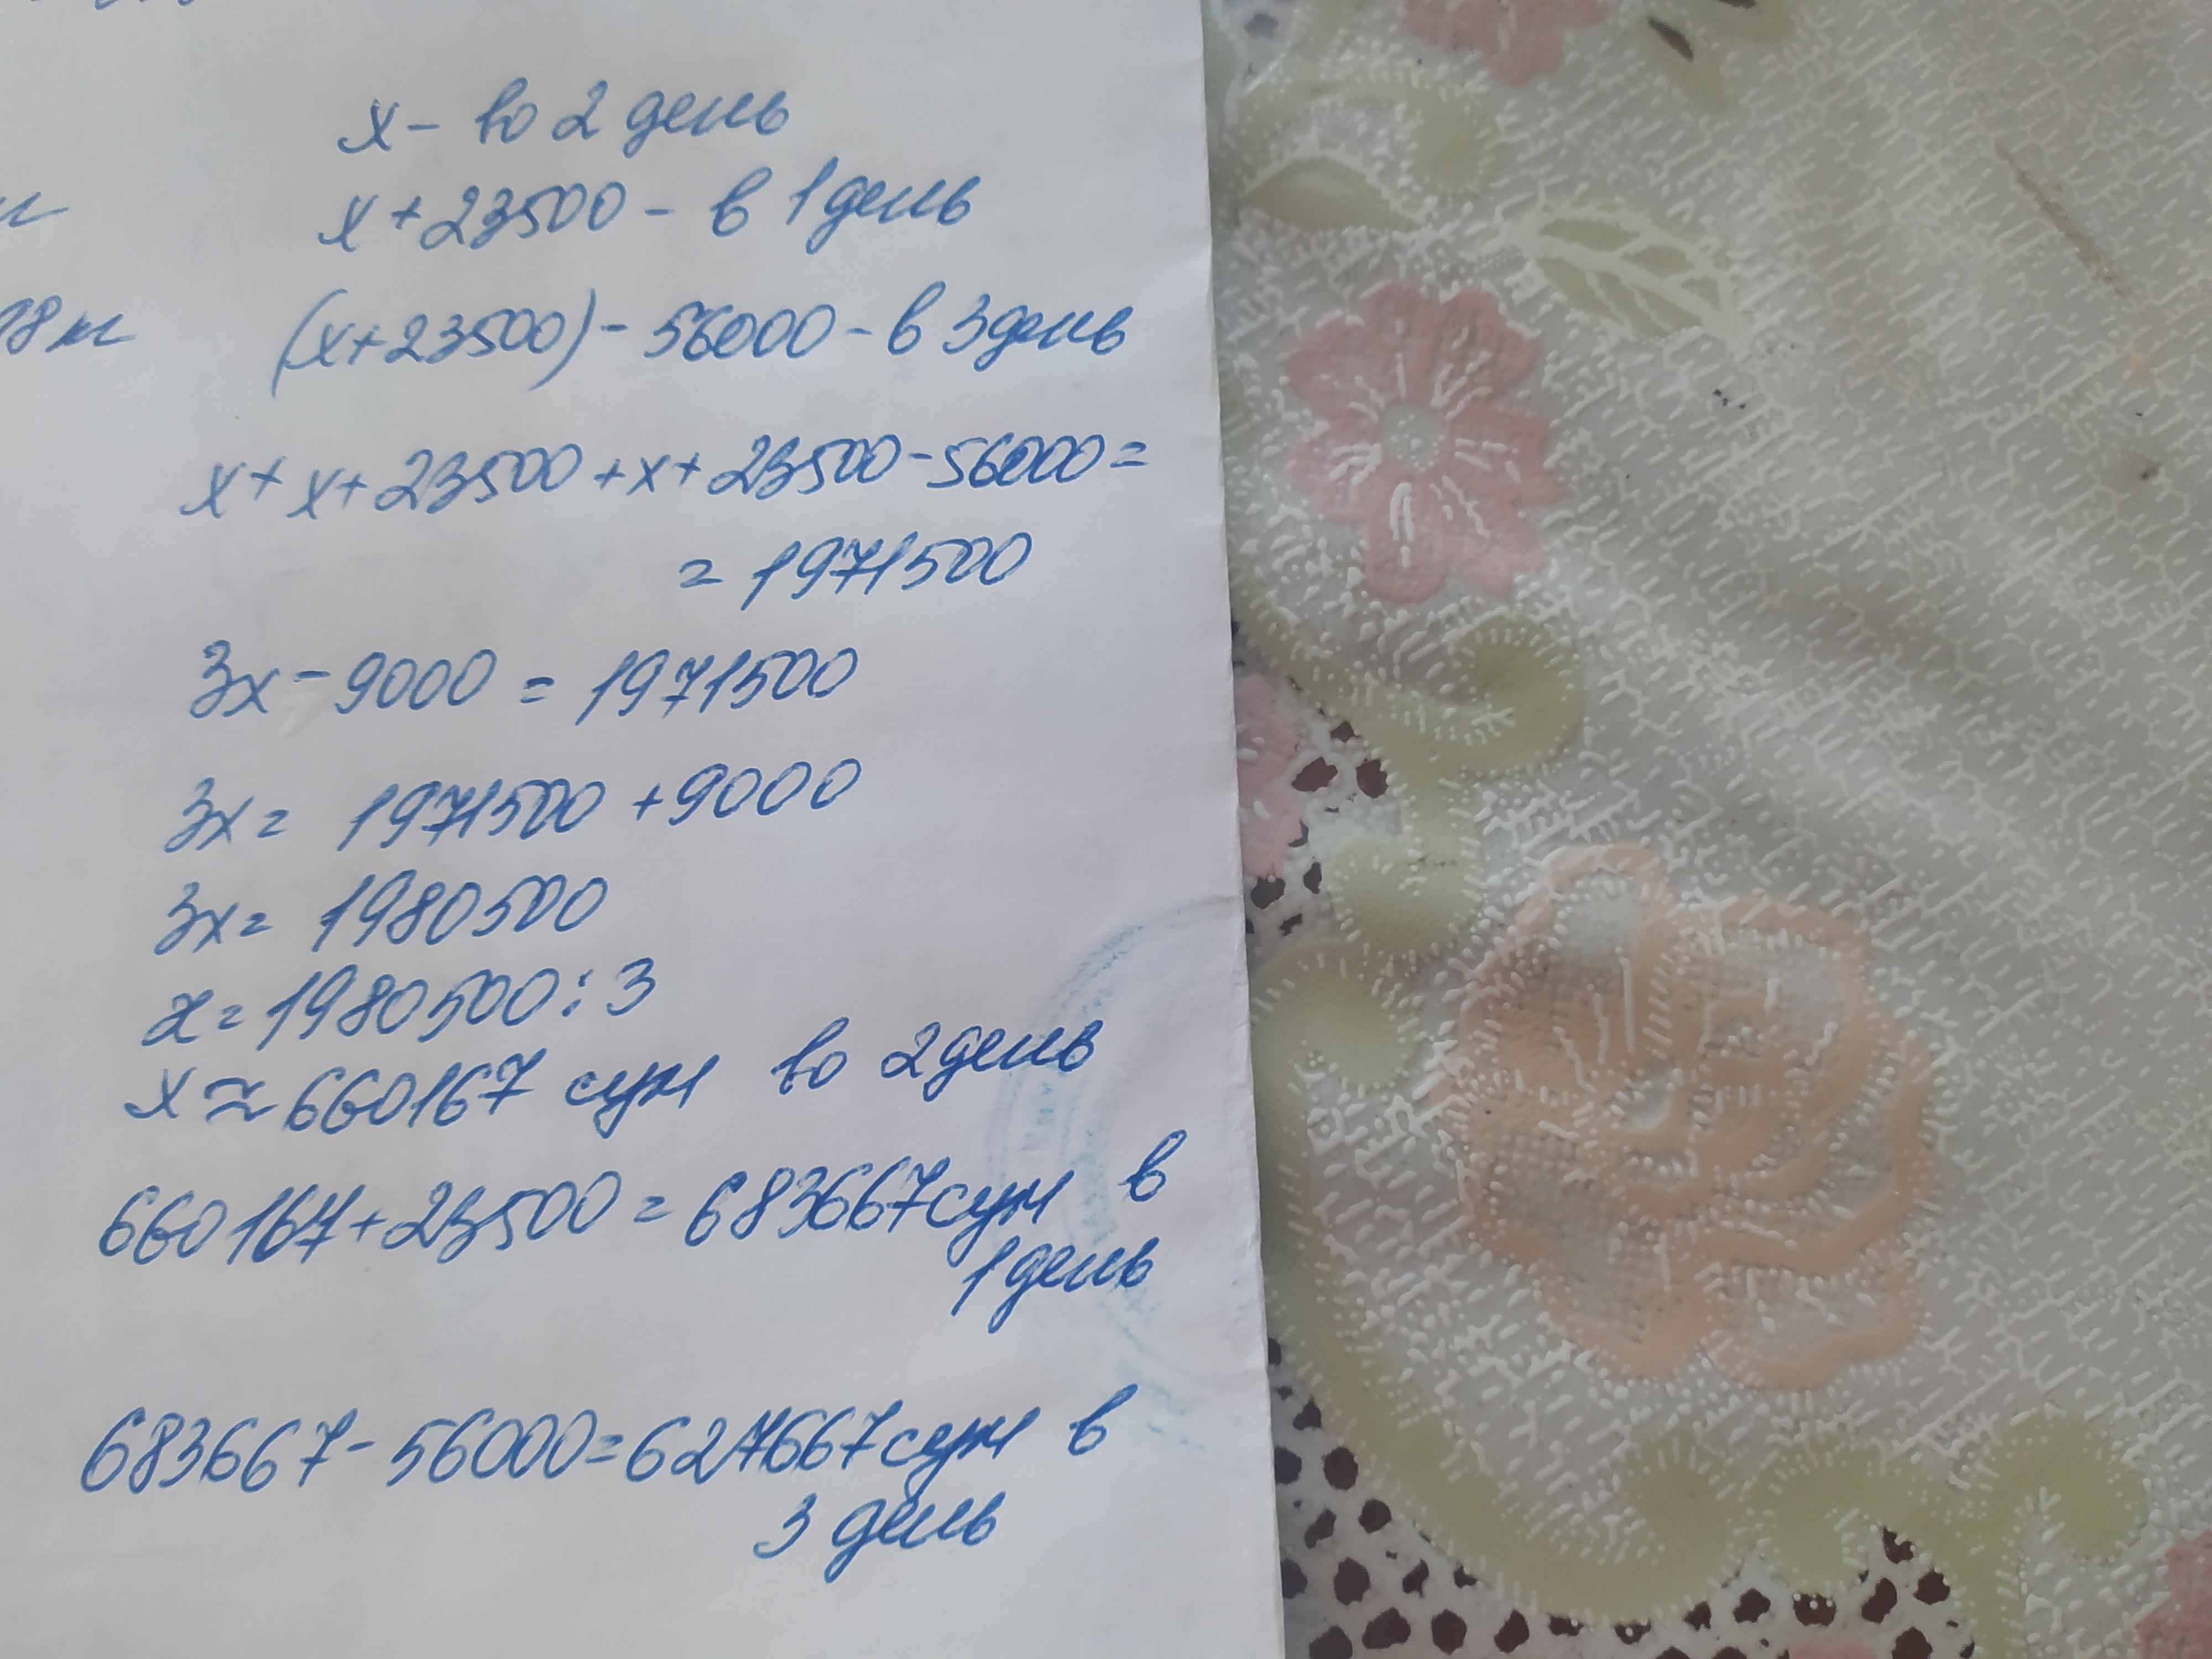 х - во 2 день
х + 23500 - в 1 день
(х+23500) - 56000 - в 3 день
х + х + 23500 + х + 23500 - 56000 =
= 1971500
3х - 9000 = 1971500
3х = 1971500 + 9000
3х = 1980500
х = 1980500 : 3
х ≈ 660167 сум во 2 день
660167 + 23500 = 683667 сум в
1 день
683667 - 56000 = 627667 сум в
3 день